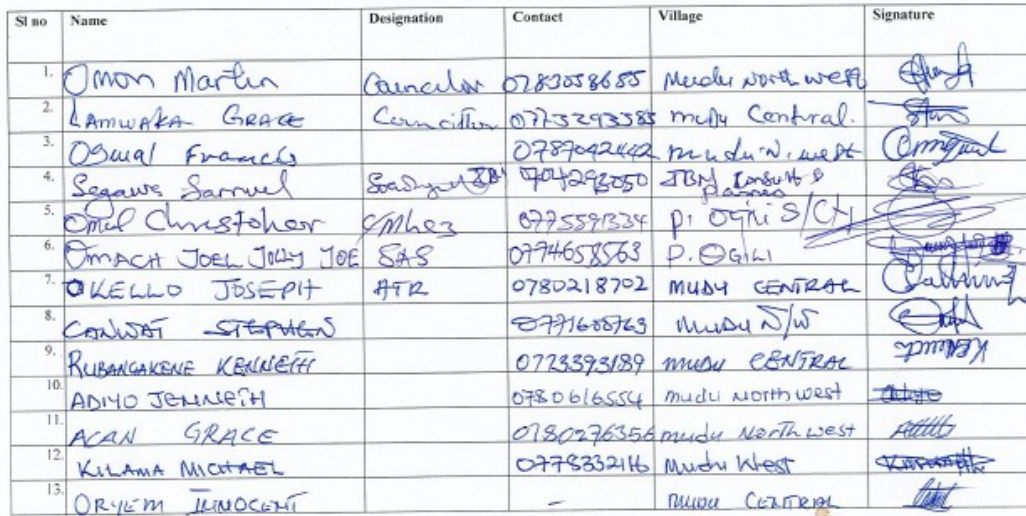 Sl no Name Designation Contact Village Signature
1. Omon Martin Councilor 0783058685 Mudu North west
2. LAMWAKA GRACE Councillor 0773293383 mudu Central.
3. Francis 0787042442 mudu N. west
4. Segawa Samuel JBN 0704293050 JBN Consults & Planners
5. Omel Christopher 0775591334 P. Ogili S/Cty
6. OMACH JOEL JOLLY JOE SAS 0774658563 P. OGILI
7. OKELLO JOSEPH ATR 0780218702 MUDU CENTRAL
8. CANWAT STEPHEN 0771608763 MUDU N/W
9. RUBANGAKENE KENNETH 0773393189 MUDU CENTRAL
10. ADIYO JENNETH 0780616554 mudu North west
11. ACAN GRACE 0780276356 mudu North west
12. KILAMA MICHAEL 0778332116 Mudu West
13. ORYEM INNOCENT - MUDU CENTRAL